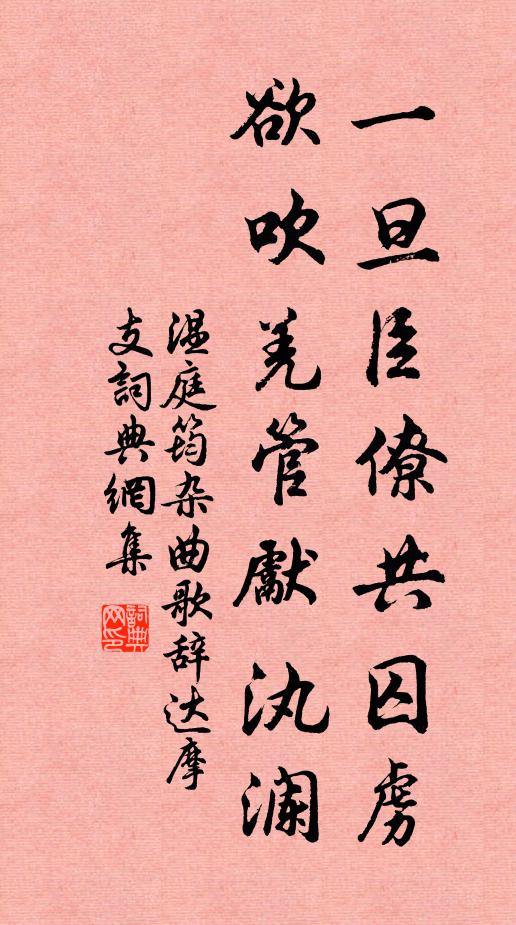 一旦臣僚共囚虏
欲吹羌管獻汍澜
温庭筠杂曲歌辞达摩
支詞典網集
詞典
网印